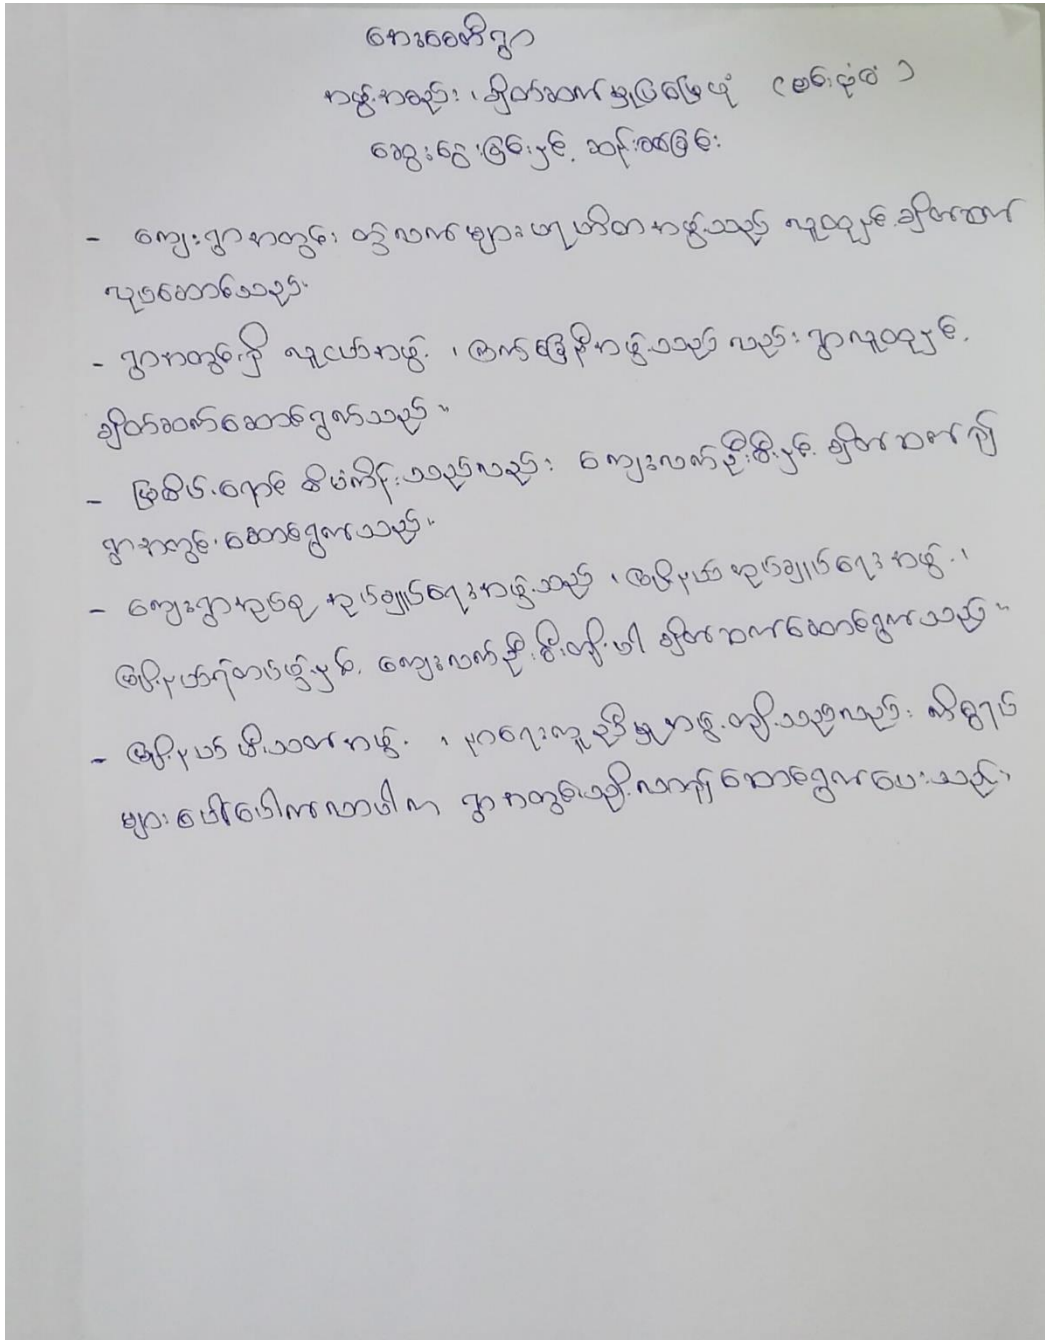 အေးစေတီရွာ
အဖွဲ့အစည်း ၊ ချိတ်ဆက်မှုပြမြေပုံ (စစ်းပုံစံ)
ဆွေးနွေးခြင်းနှင့် ဆန်းစစ်ခြင်း
- ကျေးရွာအတွင်း တွဲလက်များပရဟိတအဖွဲ့သည် လူထုနှင့်ချိတ်ဆက်
လုပ်ဆောင်သည်။
- ရွာအတွင်းရှိ လူငယ်အဖွဲ့ ၊ ကြက်ခြေနီအဖွဲ့သည် လည်း ရွာလူထုနှင့်
ချိတ်ဆက်ဆောင်ရွက်သည်။
- မြစိမ်းရောင် စီမံကိန်းသည်လည်း ကျေးလက်ဦးစီးနှင့် ချိတ်ဆက်၍
ရွာအတွင်းဆောင်ရွက်သည်။
- ကျေးရွာအုပ်စု အုပ်ချုပ်ရေးအဖွဲ့သည် ၊ မြို့နယ်အုပ်ချုပ်ရေးအဖွဲ့ ၊
မြို့နယ်ရဲတပ်ဖွဲ့နှင့် ကျေးလက်ဦးစီးတို့ပါ ချိတ်ဆက်ဆောင်ရွက်သည်။
- မြို့နယ် မီးသတ်အဖွဲ့ ၊ နာရေးကူညီမှုအဖွဲ့တို့သည်လည်း ကိစ္စရပ်
များပေါ်ပေါက်လာပါက ရွာအတွင်းသို့လာ၍ဆောင်ရွက်ပေးသည်။